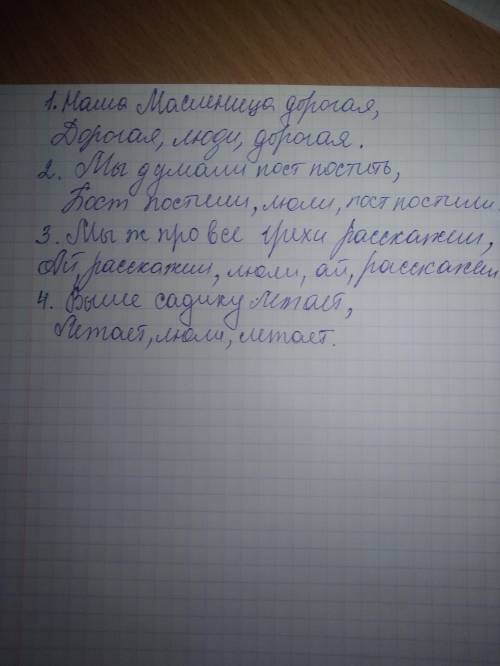 1. Наша Масленица дорогая,
Дорогая, люди, дорогая.
2. Мы думали пост постить,
Пост постили, люли, пост постили
3. Мы ж про все грехи расскажем,
Ай, расскажем, люли, ай, расскажем
4. Выше садику летает,
Летает, люли, летает.